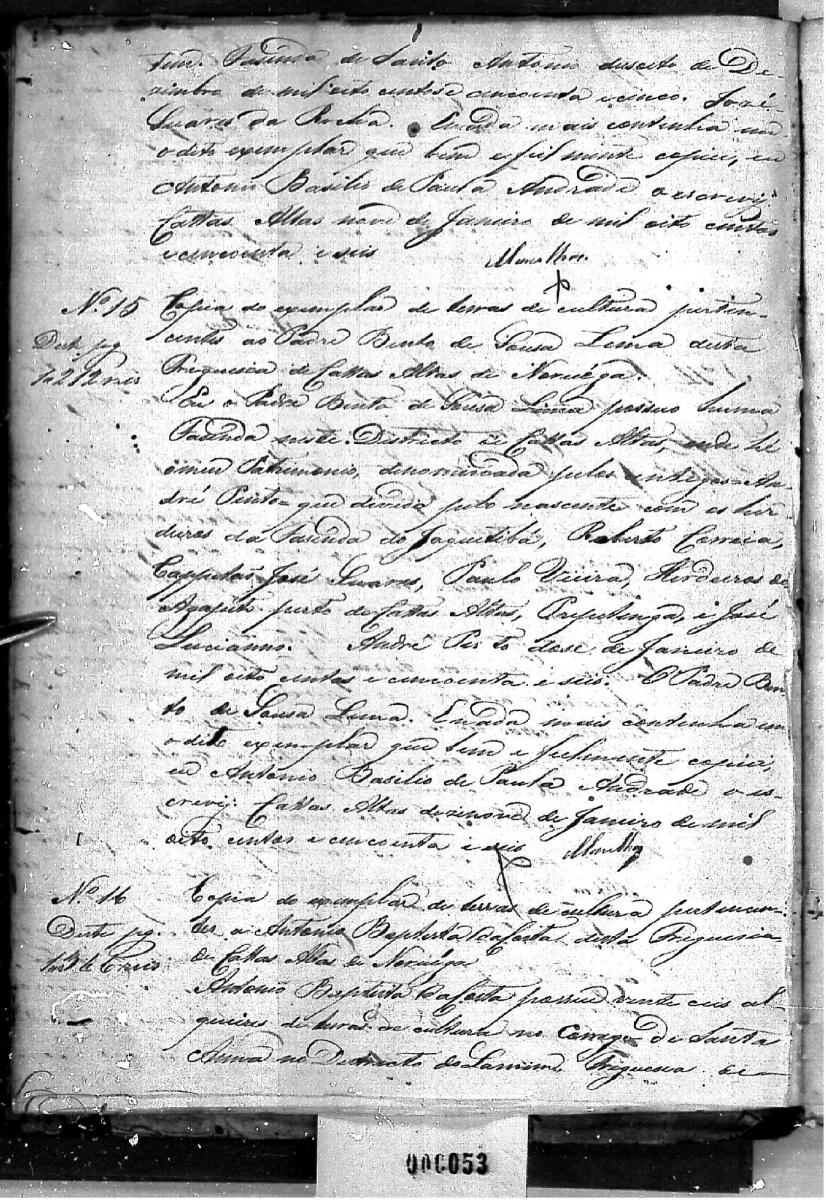 Fazenda de Santo Antonio desoito de De-
zembro de mil oito centos e cincoenta e cinco. José
Soares da Rocha. E nada mais continha em
o dito exemplar que bem e fielmente copiei, eu
Antonio Basilio de Paula Andrade o escrevy.
Cattas Altas nove de Janeiro de mil oito centos
e cincoenta e seis
Nº 15 Copia do exemplar de terras de cultura perten-
centes ao Padre Bento de Sousa Lima desta
Freguesia de Cattas Altas de Noruéga.
Deste pg
Eu o Padre Bento de Sousa Lima possuo huma
Fazenda neste Districto de Cattas Altas, onde hé
o meu Patrimonio, denominada pelos antigos An-
dré Pinto que divide pelo nascente com os her
deiros da Fazenda do Jaquitibá, Roberto Correia,
Cappitão José Soares, Paulo Vieira, Herdeiros de
perto de Cattas Altas, e José
Lucianno. André Pinto dose de Janeiro de
mil oito centos e cincoenta e seis. O Padre Ben-
to de Sousa Lima. E nada mais continha em
o dito exemplar que bem e fielmente copiei,
eu Antonio Basilio de Paula Andrade o es-
crevy. Cattas Altas dezenove de Janeiro de mil
oito centos e cincoenta e seis
Nº 16 Copia do exemplar de terras de cultura pertencen-
tes a Antonio Baptista da Costa desta Freguesia
de Cattas Altas de Noruéga
Deste pg.
Antonio Baptista da Costa possue vinte seis al-
queires de terras de cultura no Corrego de Santa
Anna no Destricto do Lamim, Freguesia de
000053